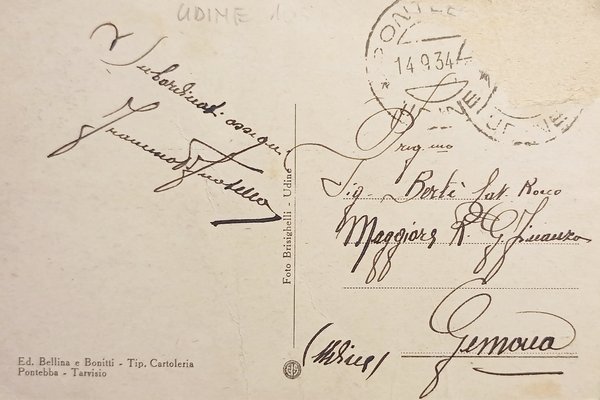 UDINE
Subordinati ossequi
14.9.34
UDINE
Preg.mo
Sig. Berti Cat. Rocco
Maggiore R. G. Finanza
Gemona
(Udine)
Foto Brisighelli - Udine
Ed. Bellina e Bonitti - Tip. Cartoleria
Pontebba - Tarvisio